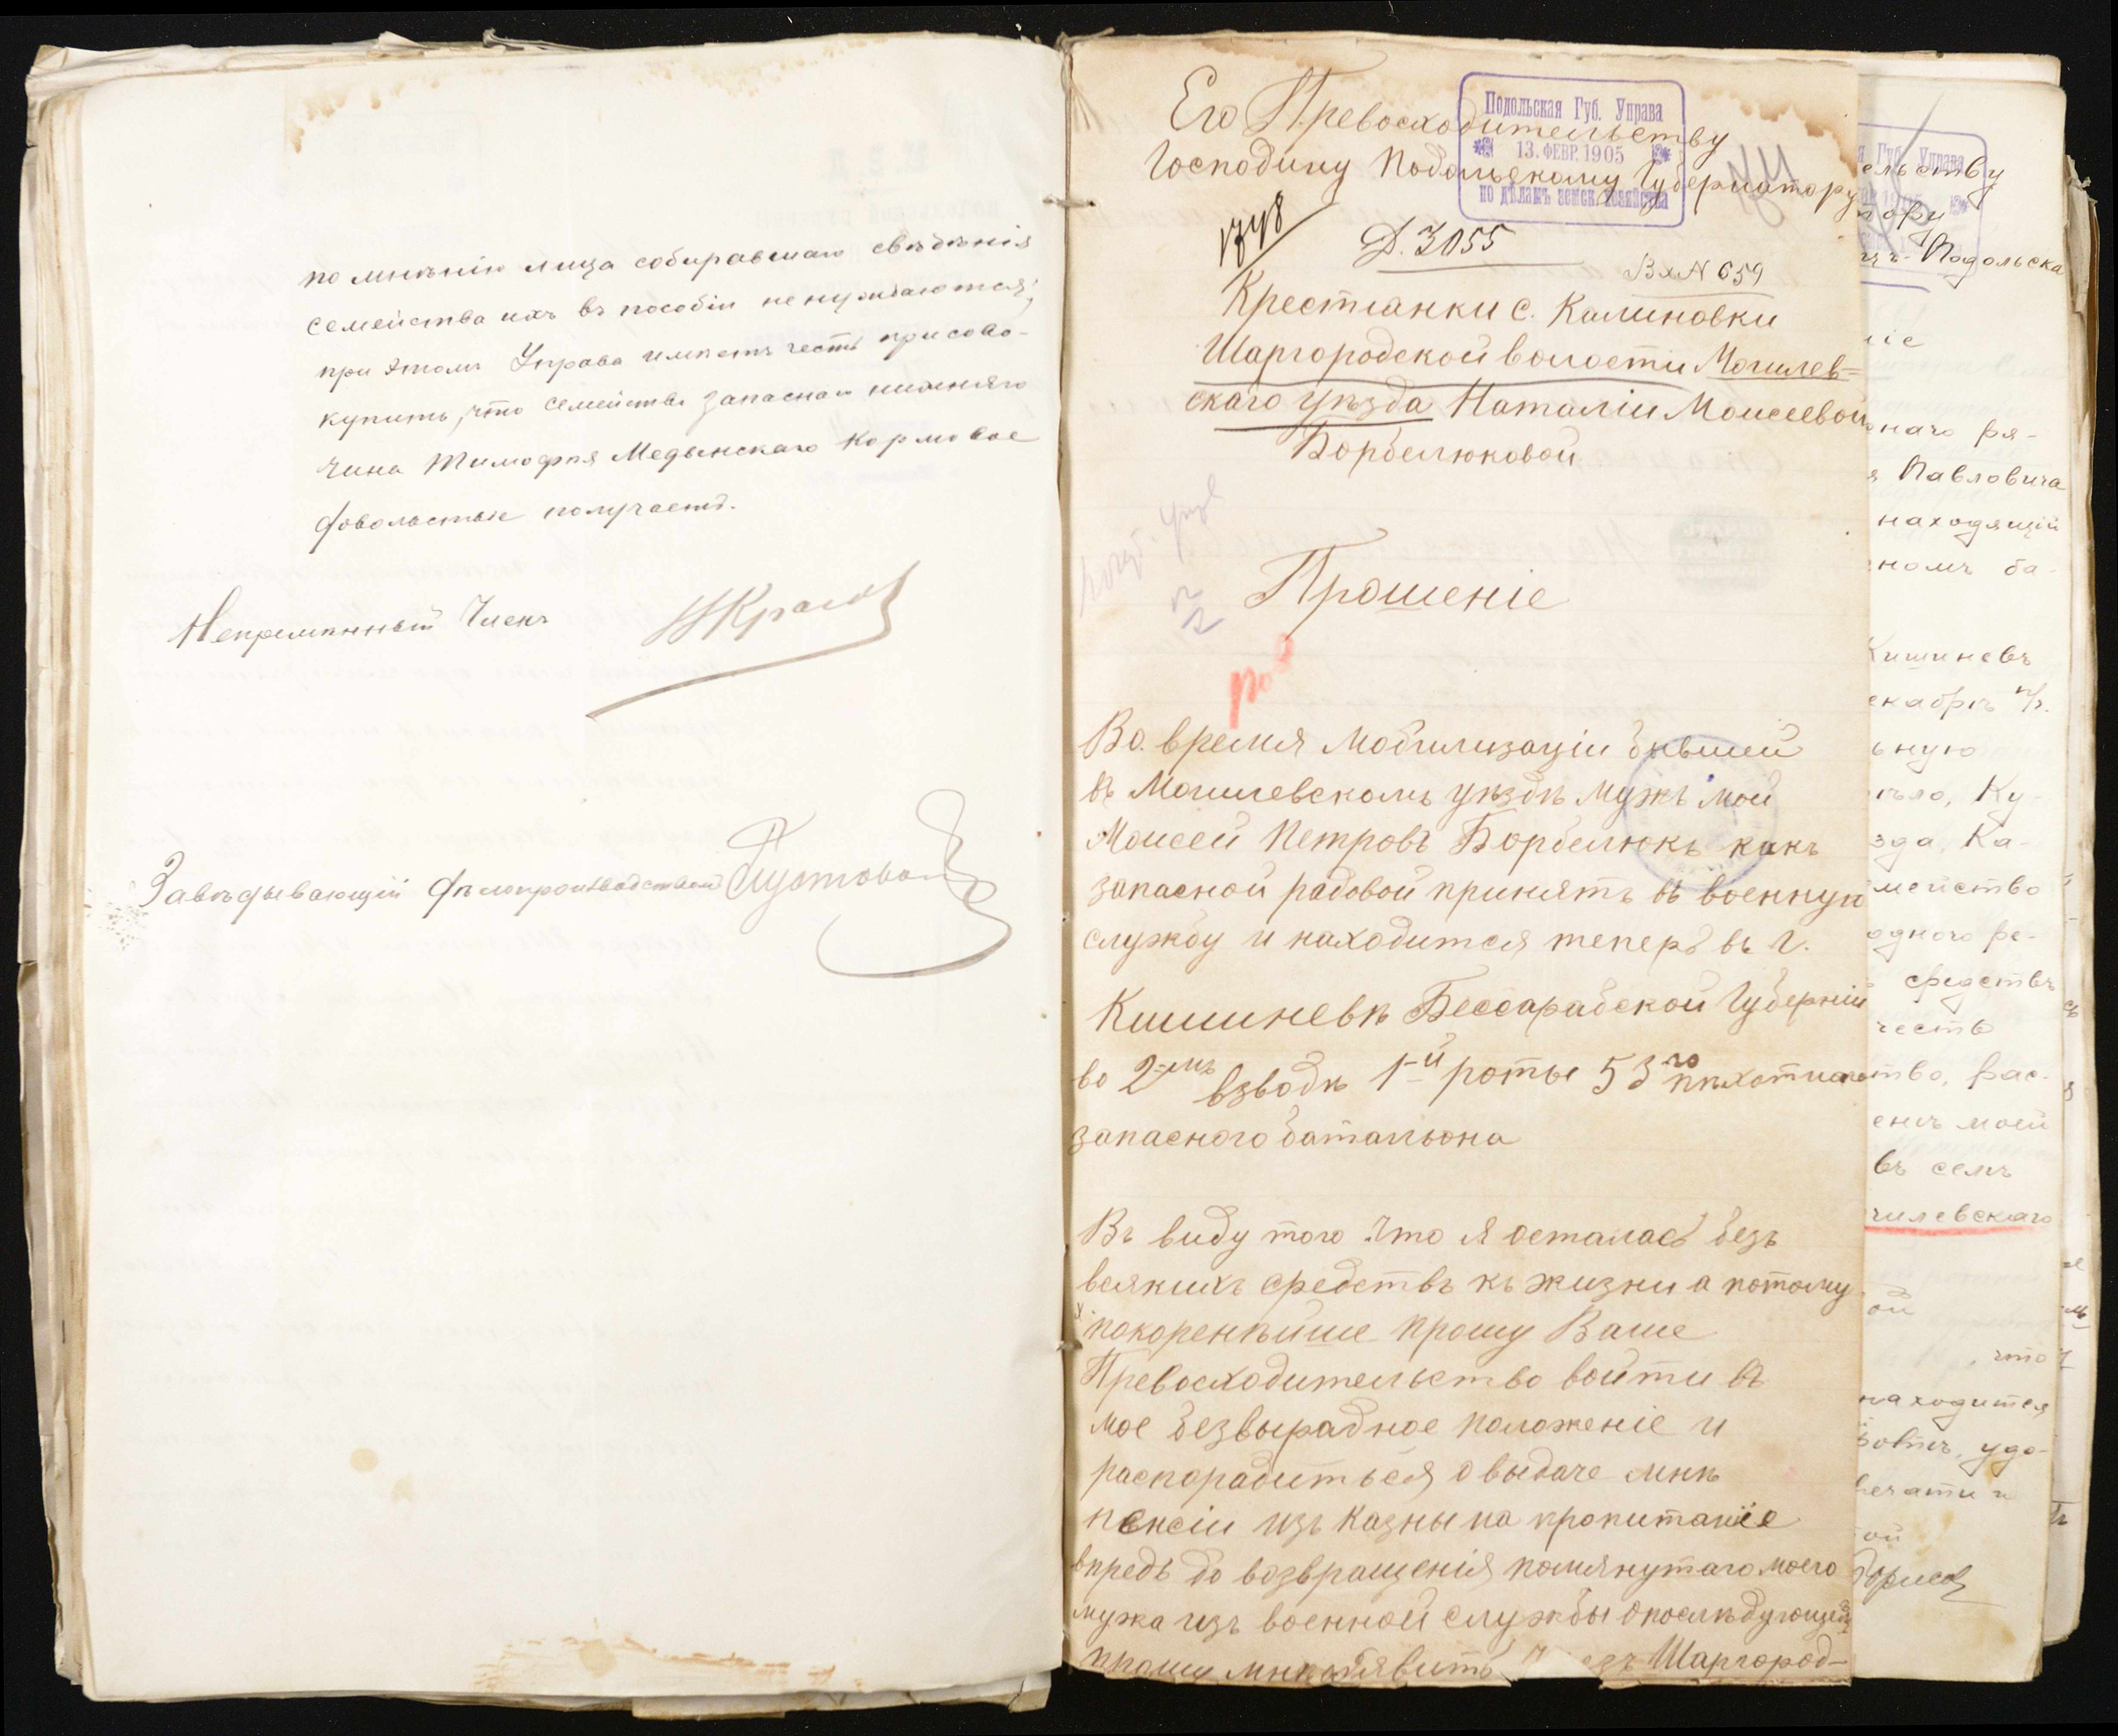 по мнѣнію лица собиравшаго свѣдѣнія
семейства ихъ въ пособіи не нуждаются;
при этомъ Управа имѣетъ честь присово-
купить, что семейство запаснаго нижняго
чина Тимофѣя Медынскаго кормовое
довольствіе получаетъ.
Непремѣнный Членъ
Завѣдывающій дѣлопроизводствомъ
Его Превосходительству
Господину Подольскому Губернатору
Подольская Губ. Управа
13. ФЕВР. 1905
по дѣламъ земск. хозяйства
1748
Д. 3055
Вх № 659
Крестіанки с. Калиновки
Шаргородской волости Могилев=
скаго уѣзда Наталіи Моисеевой
Борбелюковой
Прошеніе
Во время мобилизаціи бывшей
въ Могилевскомъ уѣздѣ мужъ мой
Моисей Петровъ Борбелюкъ какъ
запасной радовой принятъ въ военную
службу и находится теперь въ г.
Кишиневѣ Бессарабской Губерніи
во 2-мъ взводѣ 1-й роты 53го пѣхотнаго
запасного баталъона
Въ виду того что я осталась безъ
всякихъ средствъ къ жизни а потому
покорнѣйше прошу Ваше
Превосходительство войти въ
мое безвырадное положеніе и
распорадиться о выдаче мнѣ
пенсіи изъ казны на пропитаніе
впредь до возвращенія помянутаго моего
мужа изъ военной службы о послѣдующемъ
прошу мнѣ обявить Шаргород-
ельству
тору
Подольска
ніе
наго ря-
Павловича
находящій
номъ ба-
Кишиневъ
екабрѣ
ьную
ъло, Ку-
зда, Ка-
мейство
одного ре-
средствъ
честь
тво, рас-
енъ моей
въ семъ
илевскаго
ой
что
находится
удо-
печати и
ой